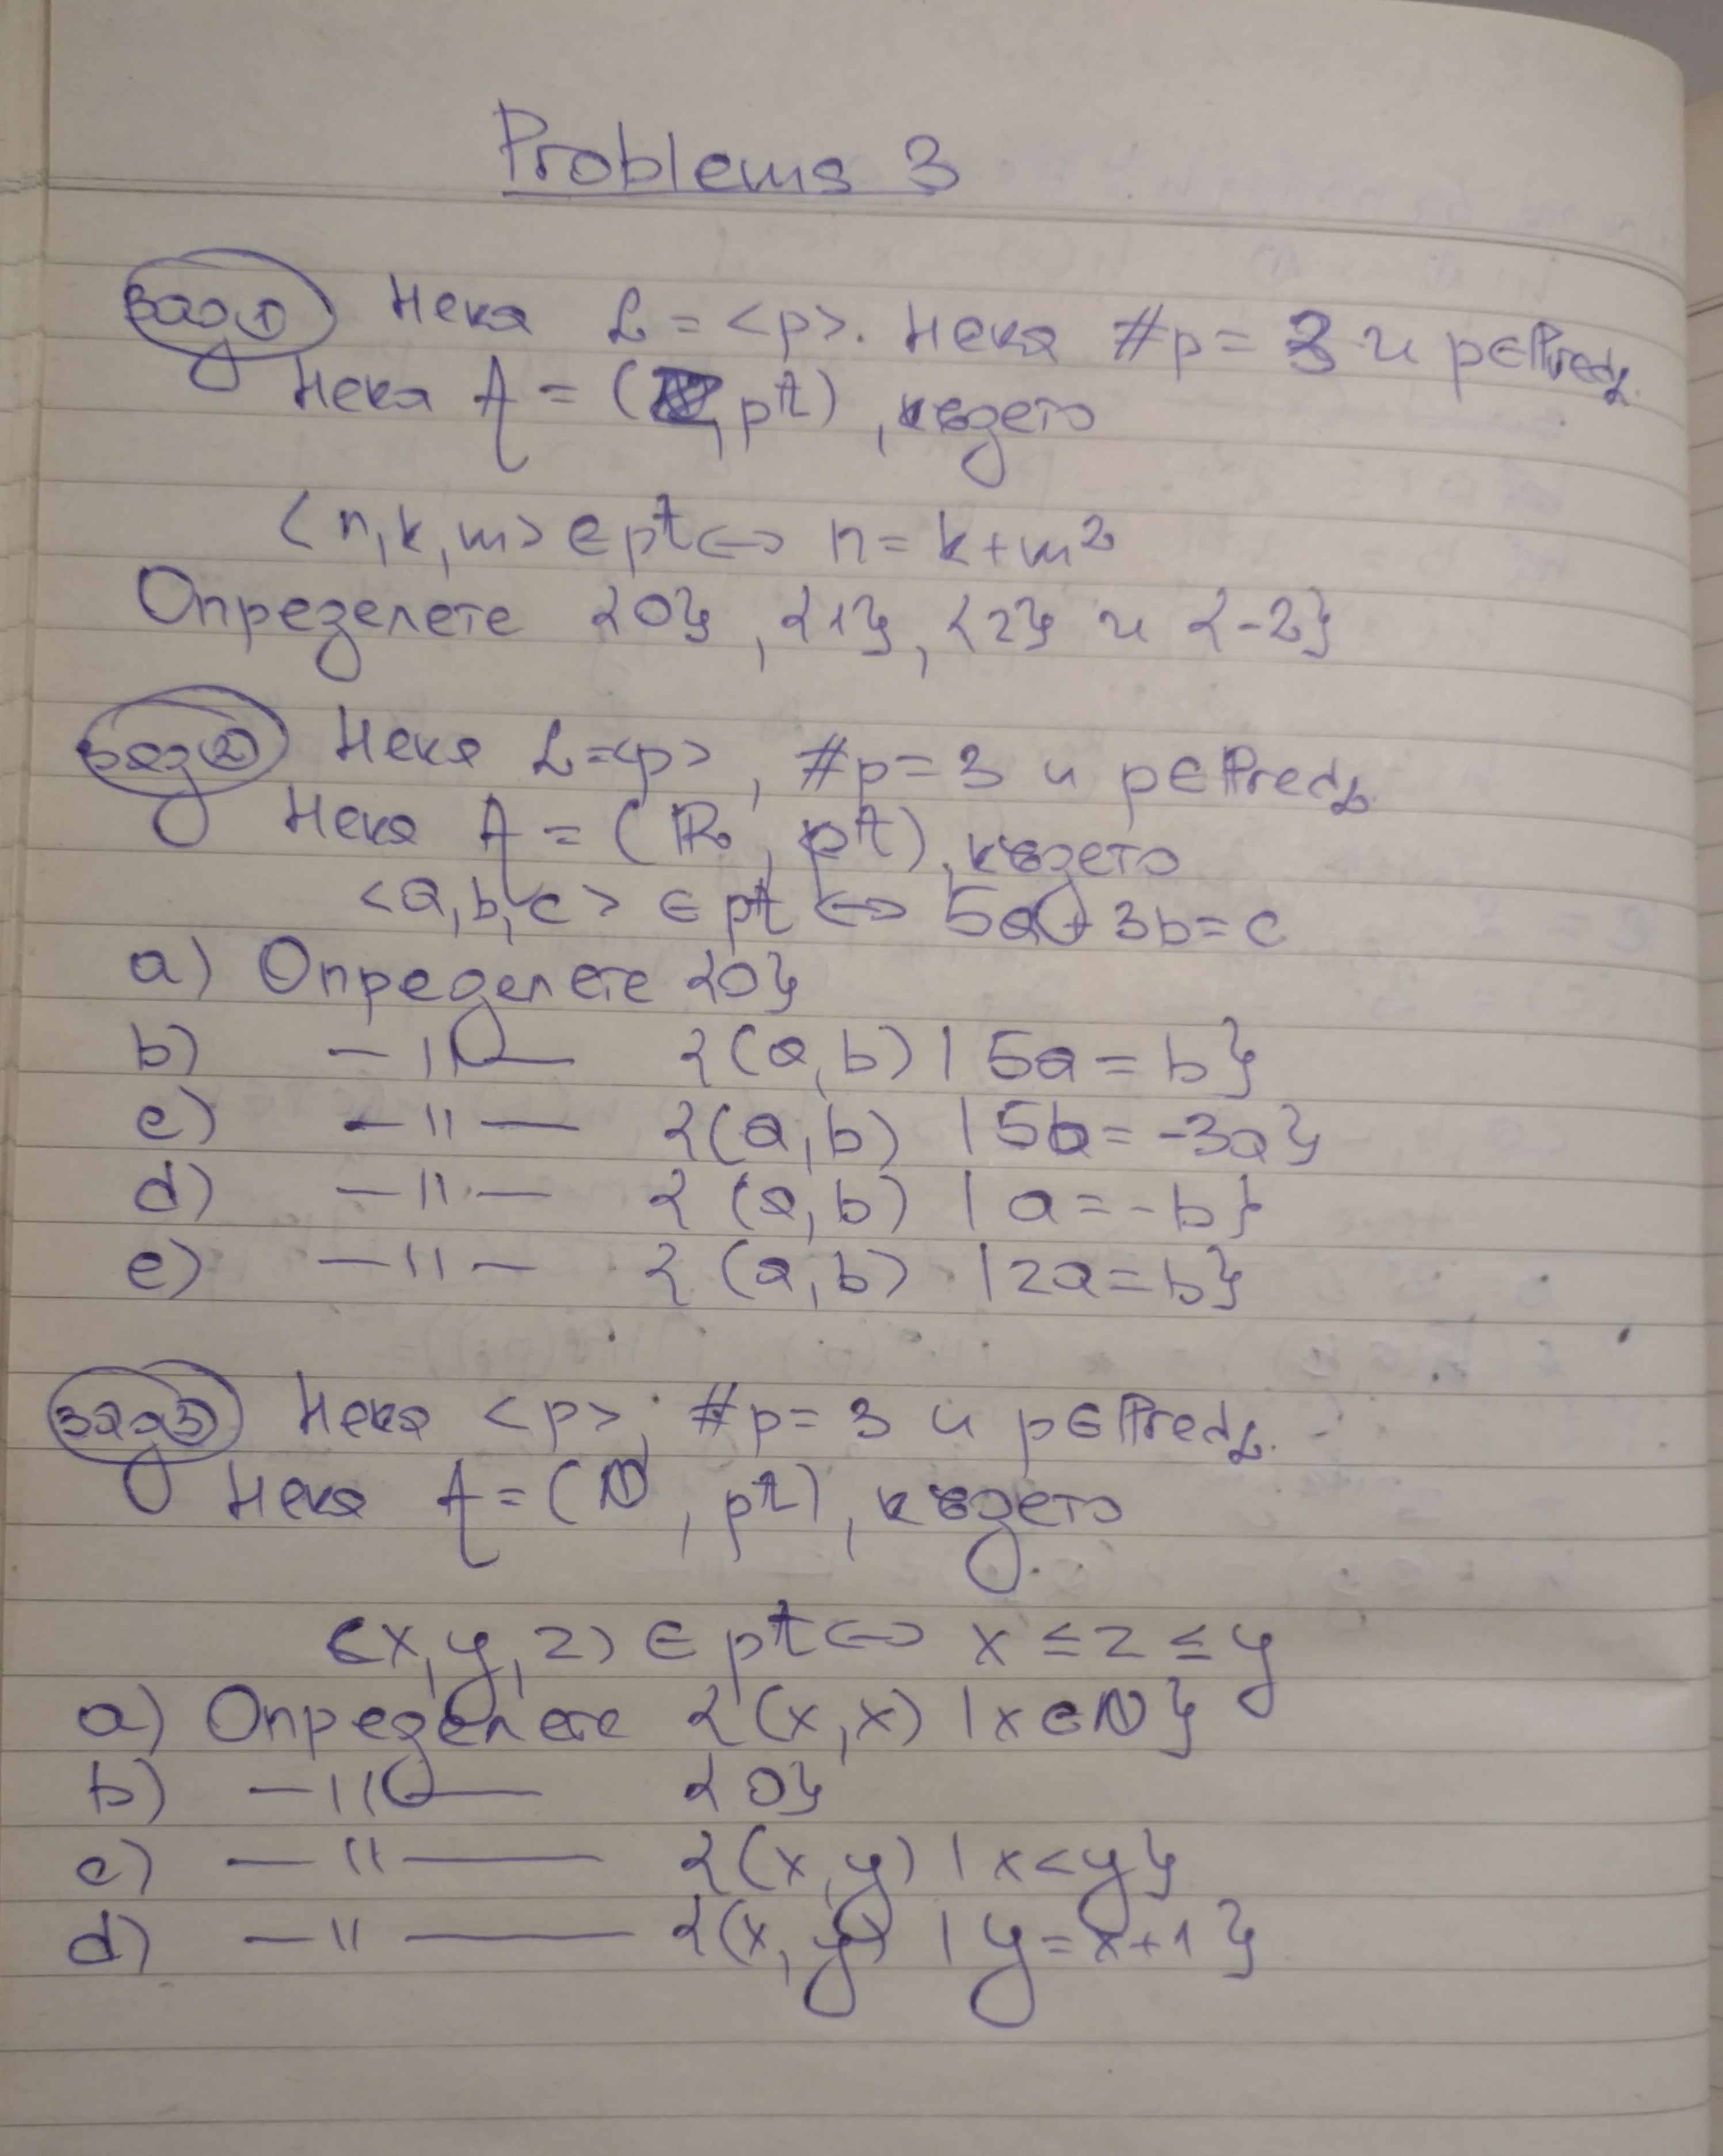 Problems 3
Зад 1 Нека L = <p>. Нека #p = 3 и p∈Pred_L.
Нека A = ( , p^A), където
<n, k, m> ∈ p^A ↔ n = k + m²
Определете {0}, {1}, {2} и {-2}
Зад 2 Нека L = <p>, #p = 3 и p∈Pred_L.
Нека A = (ℝ, p^A), където
<a, b, c> ∈ p^A ↔ 5a + 3b = c
a) Определете {0}
b) —"— {(a, b) | 5a = b}
c) —"— {(a, b) | 5b = -3a}
d) —"— {(a, b) | a = -b}
e) —"— {(a, b) | 2a = b}
Зад 3 Нека <p>, #p = 3 и p∈Pred_L.
Нека A = (ℕ, p^A), където
<x, y, z> ∈ p^A ↔ x ≤ z ≤ y
a) Определете {(x, x) | x∈ℕ}
b) —"— {0}
c) —"— {(x, y) | x < y}
d) —"— {(x, y) | y = x + 1}